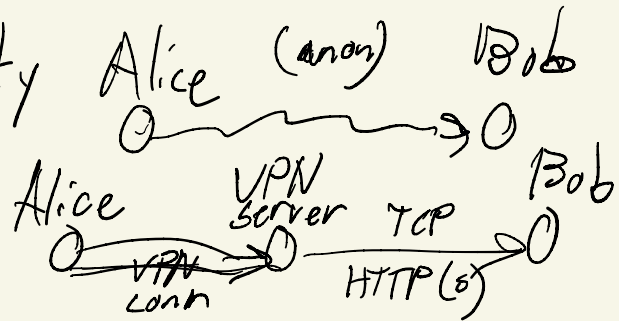 ty Alice (anon) Bob
Alice VPN server Bob
VPN conn TCP
HTTP(s)